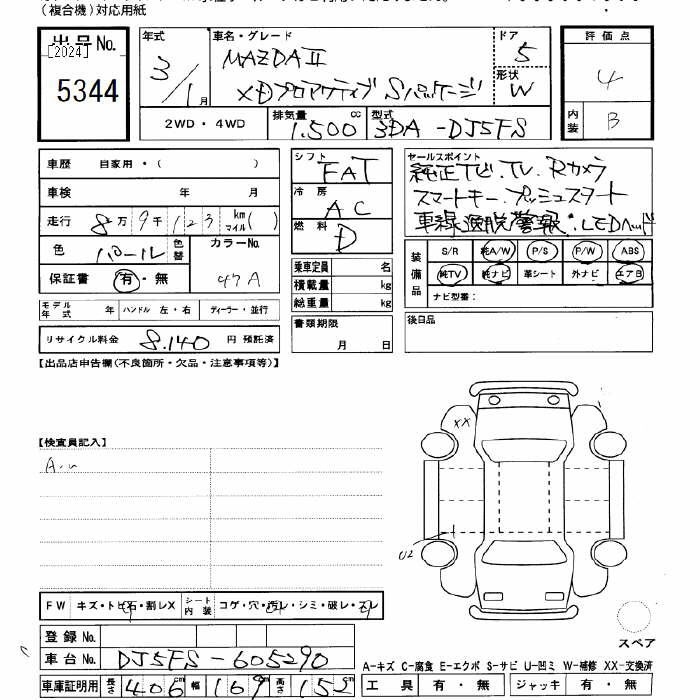 (複合機)対応用紙
出品 No.
[2024]
5344
年式 3/1 月
車名・グレード MAZDA II
XDプロアクティブ Sパッケージ
ドア 5
形状 W
評価点 4
内装 B
2WD・4WD
排気量 1.500 cc
型式 3DA-DJ5FS
車歴 自家用・( )
車検 年 月
走行 8万9千123 km マイル ( )
色 パール 色替
カラーNo. 47A
保証書 有・無
モデル年式 年 ハンドル 左・右 ディーラー・並行
リサイクル料金 8.140 円 預託済
シフト FAT
冷房 AC
燃料 D
乗車定員 名
積載量 kg
総重量 kg
書類期限
月 日
セールスポイント
純正ナビ.TV.Rカメラ
スマートキー.プッシュスタート
車線逸脱警報.LEDヘッド
装備品
S/R 純A/W P/S P/W ABS
純TV 純ナビ 革シート 外ナビ エアB
ナビ型番:
後日品
【出品店申告欄(不良箇所・欠品・注意事項等)】
【検査員記入】
XX
U2
FW キズ・トビ石・割レX シート内装 コゲ・穴・汚レ・シミ・破レ・スレ
登録 No.
車台 No. DJ5FS-605290
車庫証明用 長さ 406 cm 幅 169 高さ 152 cm
スペア
A-キズ C-腐食 E-エクボ S-サビ U-凹ミ W-補修 XX-交換済
工具 有・無 ジャッキ 有・無